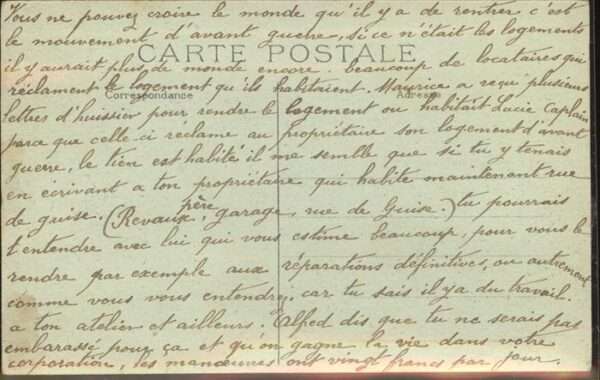 Vous ne pouvez croire le monde qu'il y a de rentrer c'est
le mouvement d'avant guerre, si ce n'était les logements
CARTE POSTALE
il y aurait plus de monde encore. beaucoup de locataires qui
réclament le logement qu'ils habitaient. Maurice a reçu plusieurs
Correspondance Adresse
lettres d'huissier pour rendre le logement ou habitait Lucie Caplain
parce que celle ci réclame au propriétaire son logement d'avant
guerre, le tien est habité il me semble que si tu y tenais
en écrivant a ton propriétaire qui habite maintenant rue
de guise. (Revaux père, garage, rue de Guise.) tu pourrais
t'entendre avec lui qui vous estime beaucoup, pour vous le
rendre par exemple aux réparations définitives, ou autrement
comme vous vous entendrez, car tu sais il y a du travail.
a ton atelier et ailleurs. Alfed dis que tu ne serais pas
embarassé pour ça et qu'on gagne la vie dans votre
corporation, les manœuvres ont vingt francs par jour.